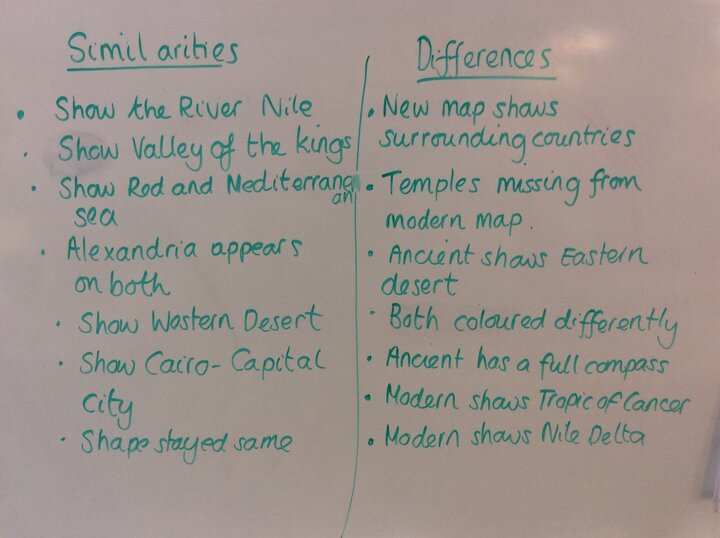 Similarities
• Show the River Nile
• Show Valley of the kings
• Show Red and Mediterranean
sea
• Alexandria appears
on both
• Show Western Desert
• Show Cairo - Capital
City
• Shape stayed same
Differences
• New map shows
surrounding countries
• Temples missing from
modern map.
• Ancient shows Eastern
desert
• Both coloured differently
• Ancient has a full compass
• Modern shows Tropic of Cancer
• Modern shows Nile Delta